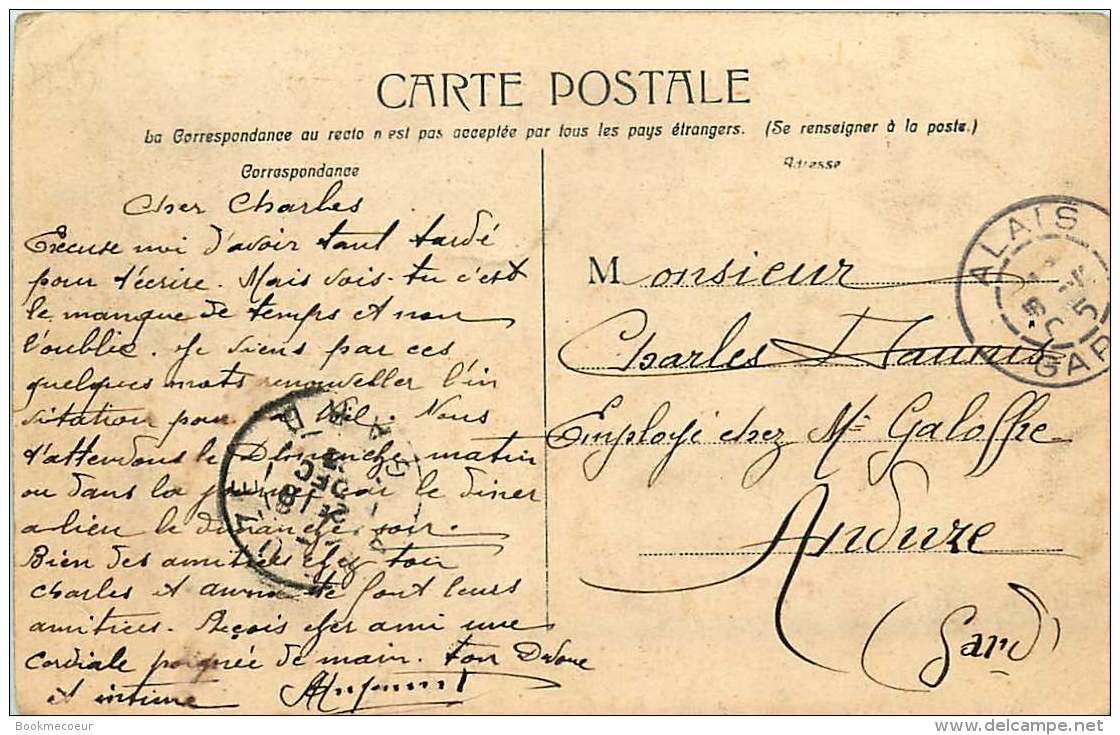 CARTE POSTALE
La Correspondance au recto n'est pas acceptée par tous les pays étrangers. (Se renseigner à la poste.)
Correspondance
Cher Charles
Excuse moi d'avoir tant tardé
pour t'écrire. Mais vois-tu c'est
le manque de temps et non
l'oublie. Je viens par ces
quelques mots renouveller l'in
vitation pour Noël. Nous
t'attendons le Dimanche matin
ou dans la car le diner
a lieu le dimanche soir.
Bien des amitiés chez toi
Charles et te font leurs
amitiées. Reçois cher ami une
cordiale poignée de main. ton
et intime
Adresse
Monsieur
Charles
Employé chez Mr Galoffre
Anduze
(Gard)
ALAIS
GARD
Bookmecoeur
www.delcampe.net